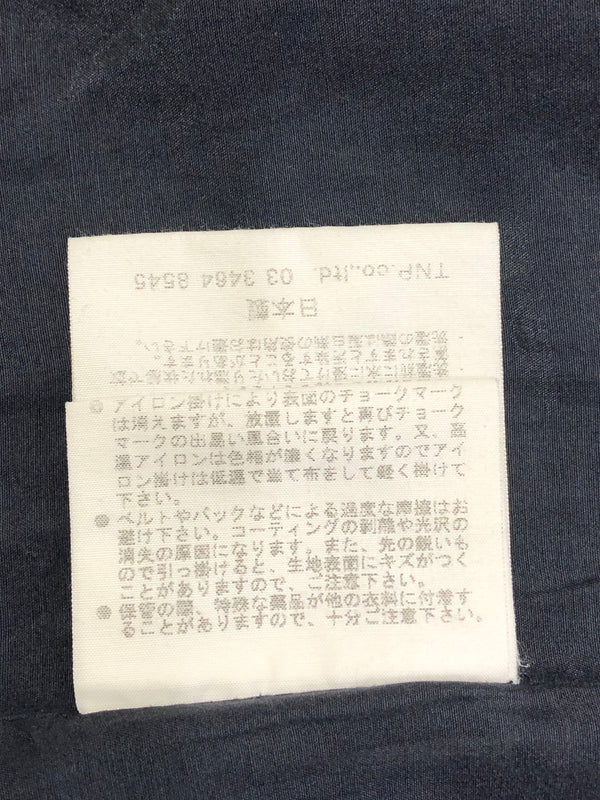 TNP.co.,ltd. 03 3464 8545
日本製
洗濯前に水に浸けておいたり濡れた状態で放
置されますと汚染することがあります。
アイロン掛けにより表面のチョークマーク
は消えますが、放置しますと再びチョーク
マークの出易い風合いに戻ります。又、高
温アイロンは色相が濃くなりますのでアイ
ロン掛けは低温で当て布をして軽く掛けて
下さい。
ベルトやバックなどによる過度な摩擦はお
避け下さい。コーティングの剥離や光沢の
消失の原因になります。また、先の鋭いも
ので引っ掛けると、生地表面にキズがつく
ことがありますので、ご注意下さい。
保管の際、特殊な薬品が他の衣料に付着す
ることがありますので、十分ご注意下さい。